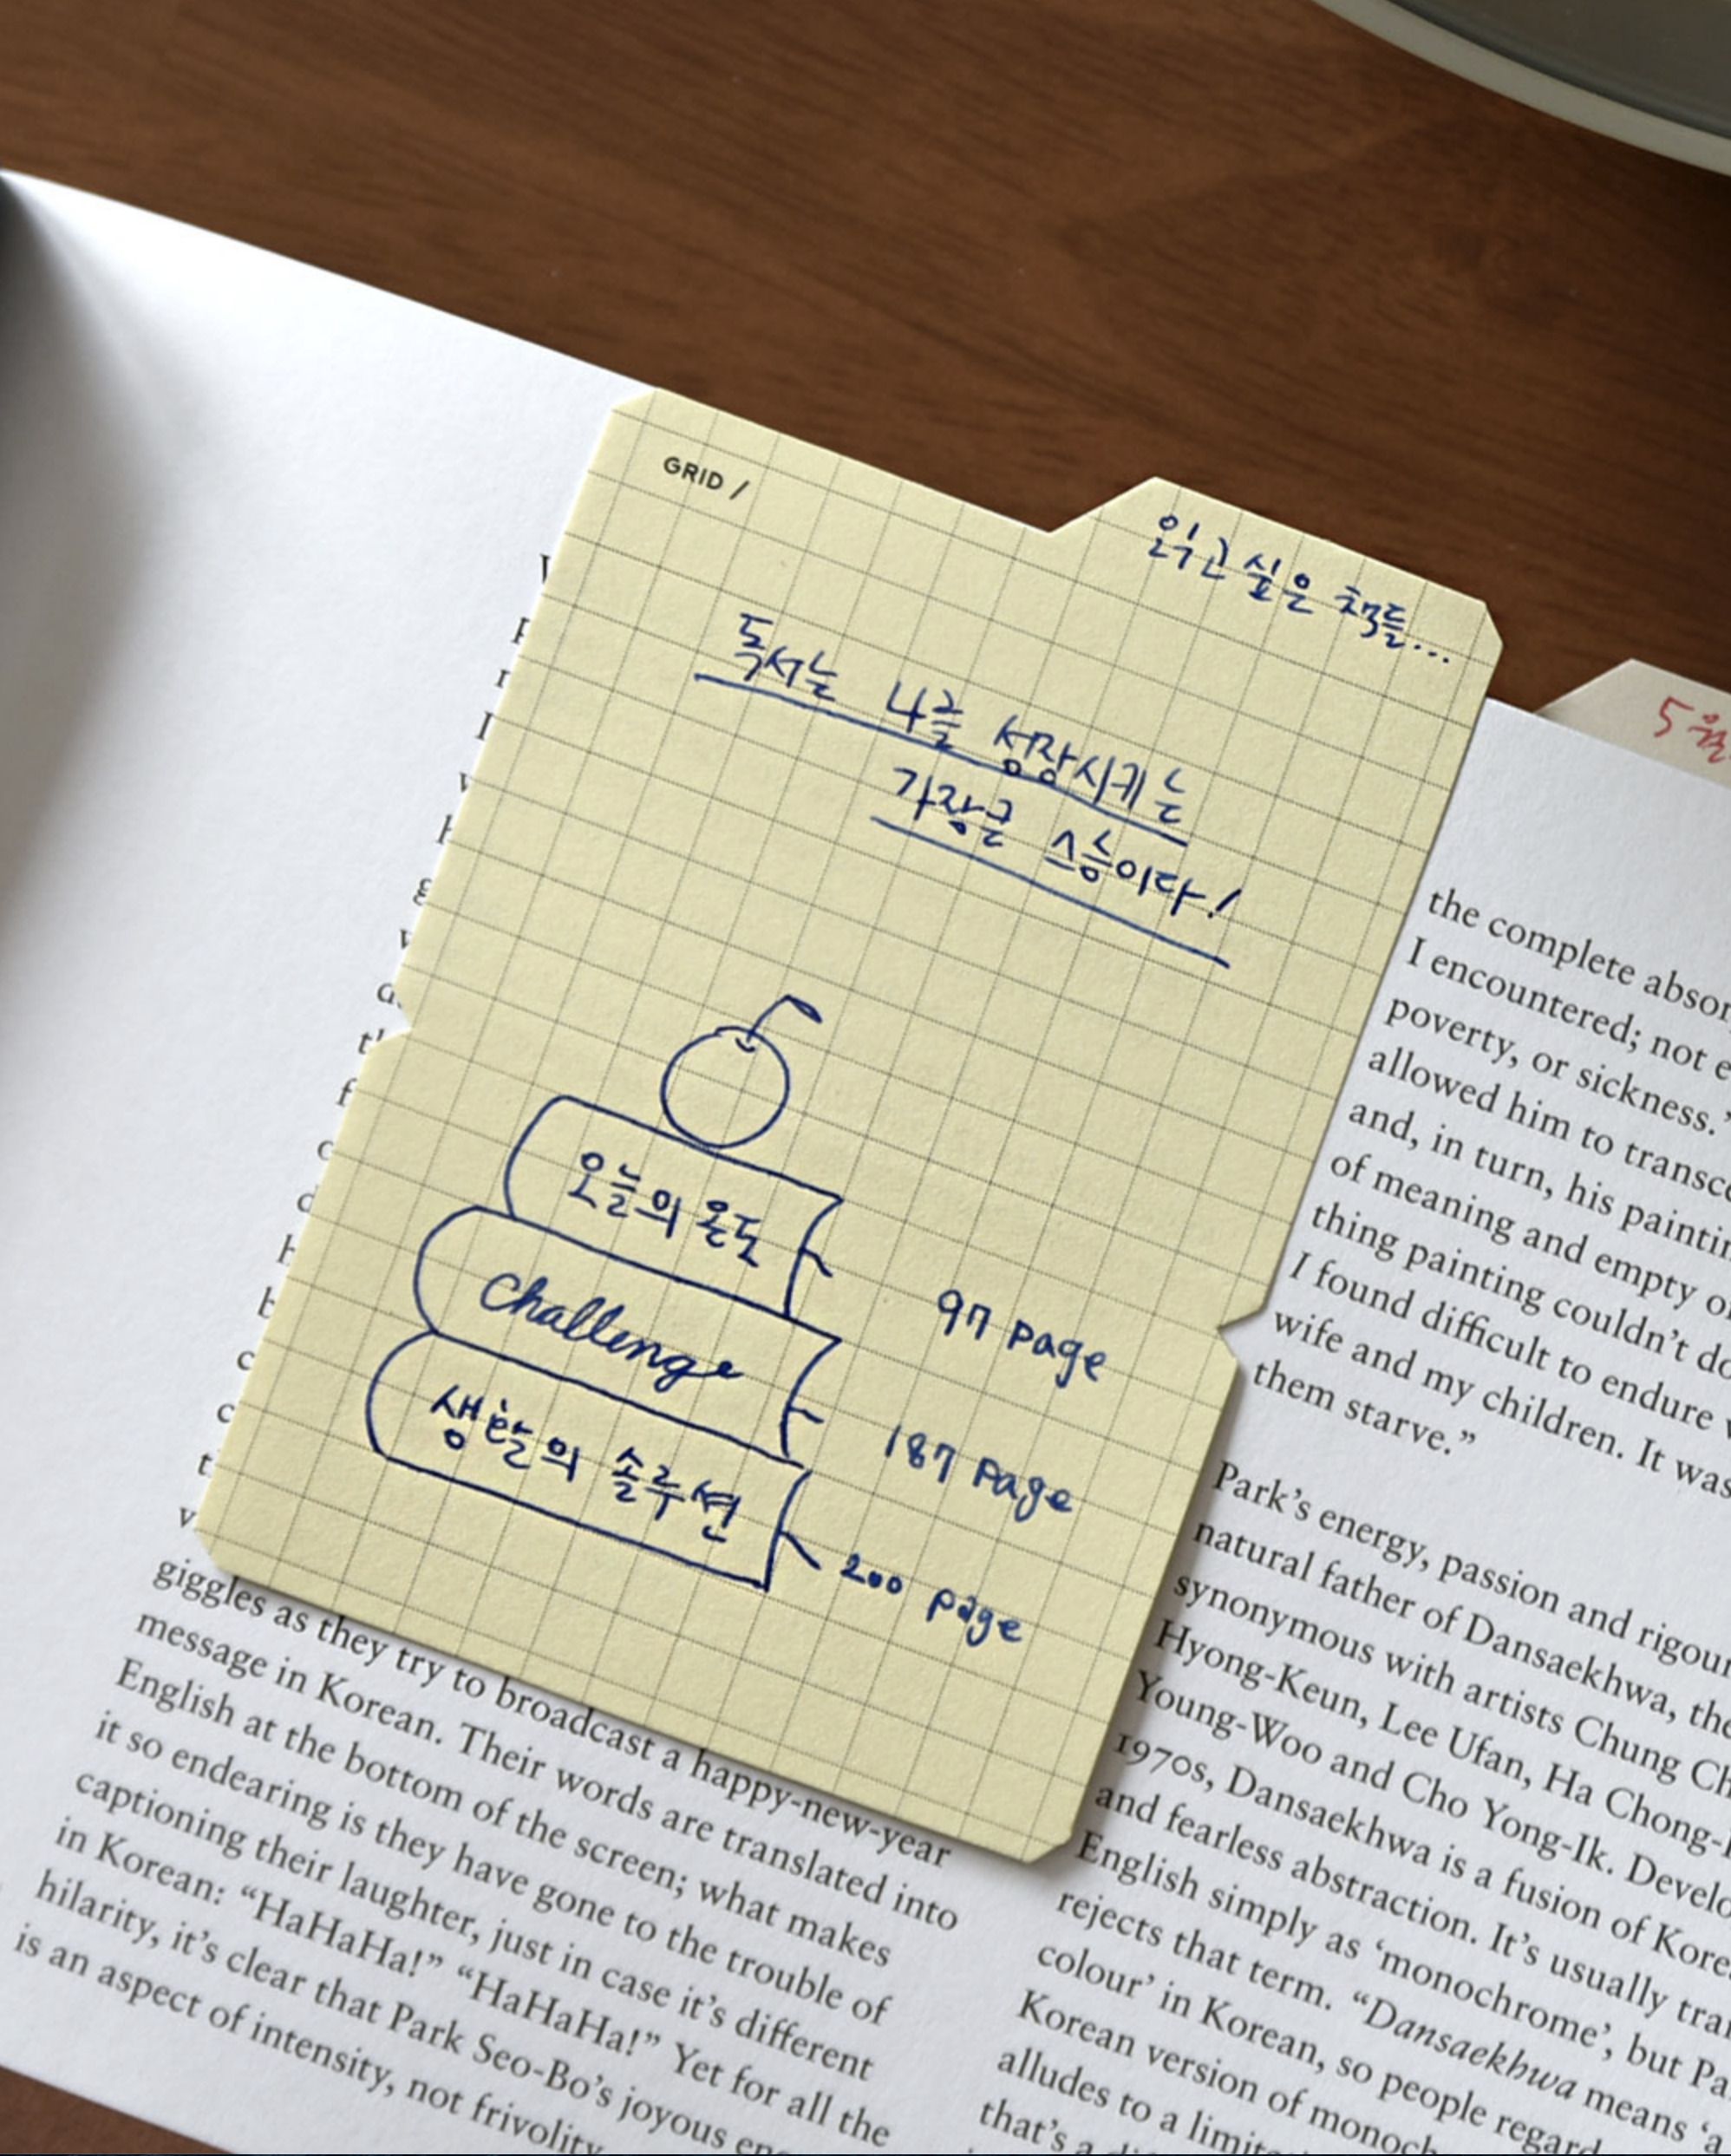 GRID /
읽고 싶은 책들...
독서는 나를 성장시키는
가장큰 스승이다!
오늘의 온도
97 page
challenge
187 page
생활의 솔루션
200 page
5월
giggles as they try to broadcast a happy-new-year
message in Korean. Their words are translated into
English at the bottom of the screen; what makes
it so endearing is they have gone to the trouble of
captioning their laughter, just in case it’s different
in Korean: “HaHaHa!” “HaHaHa!” Yet for all the
hilarity, it’s clear that Park Seo-Bo’s joyous
is an aspect of intensity, not frivolity
the complete
I encountered; not
poverty, or sickness.”
allowed him to
and, in turn, his
of meaning and empty
thing painting couldn’t
I found difficult to endure
wife and my children. It was
them starve.”
Park’s energy, passion and
natural father of Dansaekhwa,
synonymous with artists Chung
Hyong-Keun, Lee Ufan, Ha
Young-Woo and Cho Yong-Ik.
1970s, Dansaekhwa is a fusion of
and fearless abstraction. It’s usually
English simply as ‘monochrome’, but
rejects that term. “Dansaekhwa means
colour’ in Korean, so people
Korean version of
alludes to a
that’s a